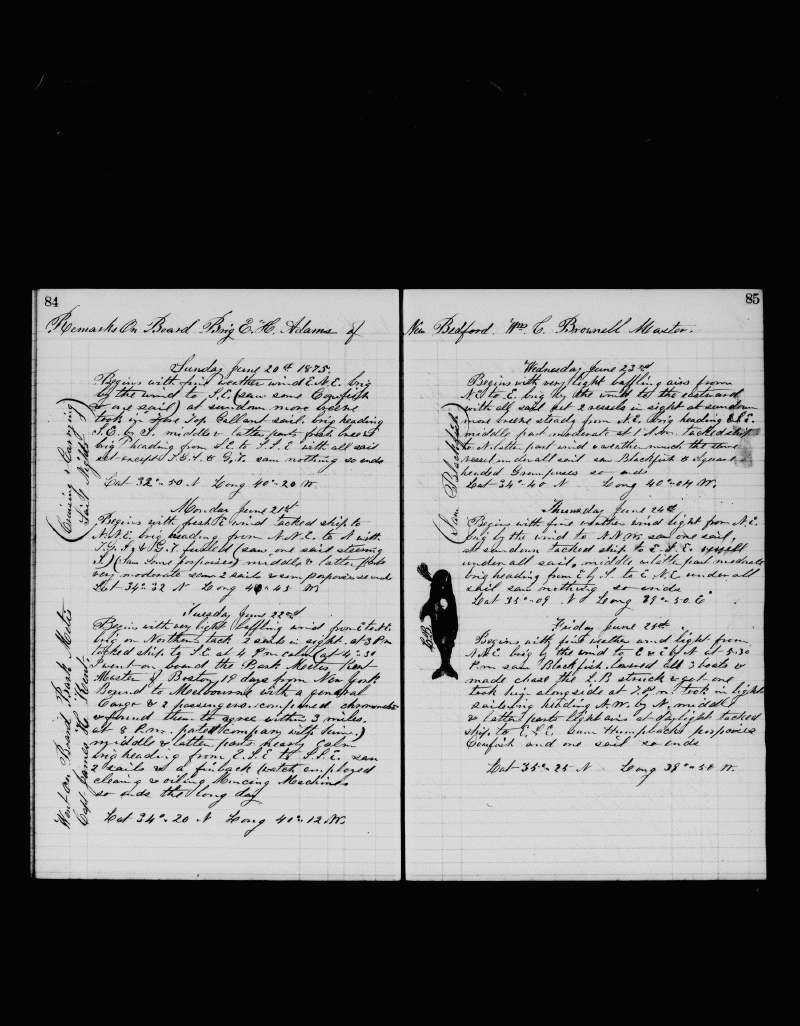 84
Remarks On Board Brig E. H. Adams of
Sunday June 20th 1875.
Begins with fine weather wind E.N.E. brig
by the wind to S.E. (saw some Cowfish
& one sail) at sundown more breeze
took in Fore Top Gallant sail. brig heading
S.E. by S. middle & latter parts fresh breeze
brig heading from S.E. to S.S.E with all sail
set except T.G.S. & G.T. saw nothing so ends
Lat 32°-50 N Long 40°-20 W.
(Cruising & Carrying
Sail Nights)
Monday June 21st
Begins with fresh E wind tacked ship to
N.N.E. brig heading from N.N.E. to N with
T.G.S. & G.T. furled (saw one sail steering
S.) (saw some porpoises) middle & latter parts
very moderate seen 2 sails & seen porpoises so ends
Lat 34°-32 N Long 40°-45 W
Tuesday June 22nd
Begins with very light baffling wind from E to S.E.
brig on Northern tack 2 sails in sight. at 3 P.m
tacked ship to S.E at 4 P.m calm (at 4-30
I went on board the Bark Metis, Kent
Master of Boston, 19 days from New York
Bound to Melbourne with a general
Cargo & 2 passengers. compared chronometer
& found them to agree within 3 miles.
at 8 P.m. parted company with him.)
middle & latter parts nearly calm
brig heading from E.S.E to S.S.E. saw
2 sails & a finback (watch employed
cleaning & oiling Mincing Machine
so ends the long day
Lat 34°-20 N Long 40°-12 W.
Went on Board Bark Metis
Capt James H Kent
85
New Bedford. Wm. C. Brownell Master.
Wednesday June 23rd
Begins with very light baffling airs from
N.E to E. brig by the wind to the eastward
with all sail set 2 vessels in sight at sundown
more breeze steady from N.E. brig heading
middle part moderate at 1 A.m. tacked ship
to N. latter part wind & weather much the same
vessel under all sail saw Blackfish & Square
headed Grampuses so ends
Lat 34°-40 N Long 40°-04 W.
(Saw Blackfish)
Thursday June 24th
Begins with fine weather wind light from N.E.
brig by the wind to N.N.W. saw one sail,
at sundown tacked ship to E.S.E.
under all sail, middle & latter part moderate
brig heading from E by S. to E.N.E under all
sail saw nothing so ends
Lat 35°-09 N Long 39°-50 E
Friday June 25th
Begins with fine weather wind light from
N.N.E brig by the wind to E & E by N at 5-30
P.m saw Blackfish. lowered all 3 boats &
made chase the L.B struck & got one
took him alongside at 7. P.m. took in light
sails brig heading N.W. by N. middle
& latter parts light airs at daylight tacked
ship to E.S.E. Saw Humpbacks porpoises
Cowfish and one sail so ends
Lat 35°-25 N Long 38°-58 W.
L.B.